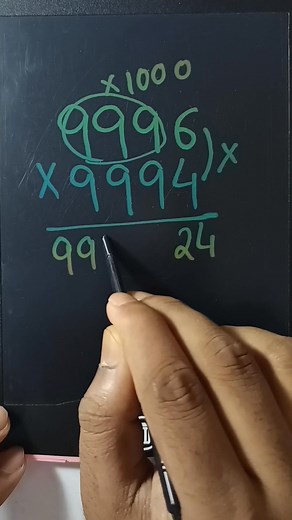 x1000
9996
x9994)x
99 24